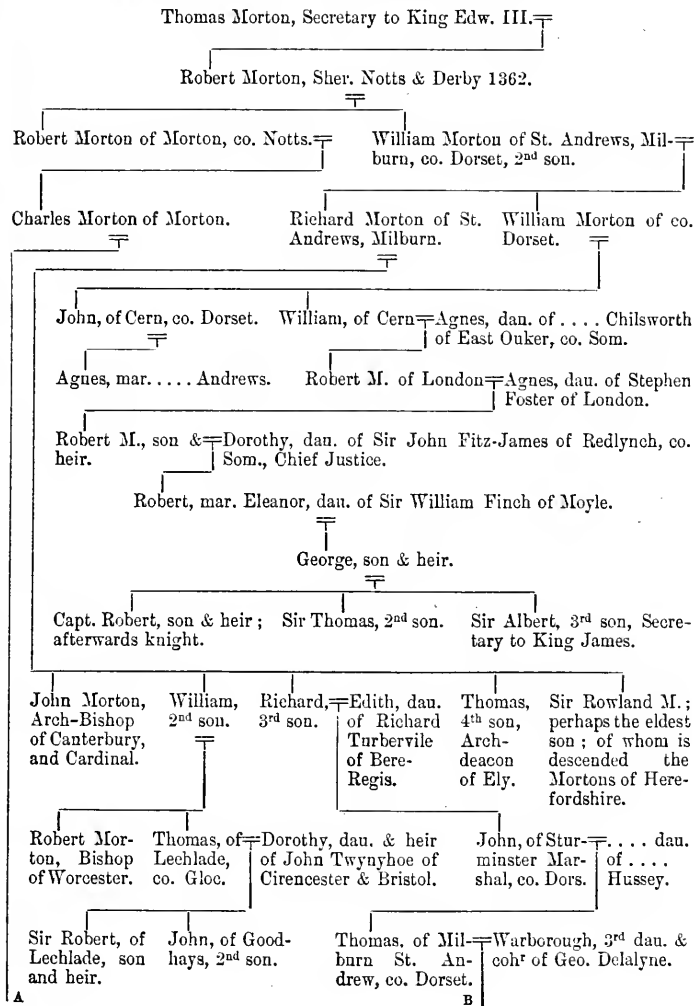 Thomas Morton, Secretary to King Edw. III.
Robert Morton, Sher. Notts & Derby 1362.
Robert Morton of Morton, co. Notts.
William Morton of St. Andrews, Mil-
burn, co. Dorset, 2nd son.
Charles Morton of Morton.
Richard Morton of St.
Andrews, Milburn.
William Morton of co.
Dorset.
John, of Cern, co. Dorset.
William, of Cern
Agnes, dan. of .... Chilsworth
of East Ouker, co. Som.
Agnes, mar. .... Andrews.
Robert M. of London
Agnes, dau. of Stephen
Foster of London.
Robert M., son &
heir.
Dorothy, dau. of Sir John Fitz-James of Redlynch, co.
Som., Chief Justice.
Robert, mar. Eleanor, dau. of Sir William Finch of Moyle.
George, son & heir.
Capt. Robert, son & heir;
afterwards knight.
Sir Thomas, 2nd son.
Sir Albert, 3rd son, Secre-
tary to King James.
John Morton,
Arch-Bishop
of Canterbury,
and Cardinal.
William,
2nd son.
Richard,
3rd son.
Edith, dau.
of Richard
Turbervile
of Bere-
Regis.
Thomas,
4th son,
Arch-
deacon
of Ely.
Sir Rowland M.;
perhaps the eldest
son; of whom is
descended the
Mortons of Here-
fordshire.
Robert Mor-
ton, Bishop
of Worcester.
Thomas, of
Lechlade,
co. Gloc.
Dorothy, dau. & heir
of John Twynyhoe of
Cirencester & Bristol.
John, of Stur-
minster Mar-
shal, co. Dors.
.... dau.
of ....
Hussey.
Sir Robert, of
Lechlade, son
and heir.
John, of Good-
hays, 2nd son.
Thomas, of Mil-
burn St. An-
drew, co. Dorset.
Warborough, 3rd dau. &
cohr of Geo. Delalyne.
A
B